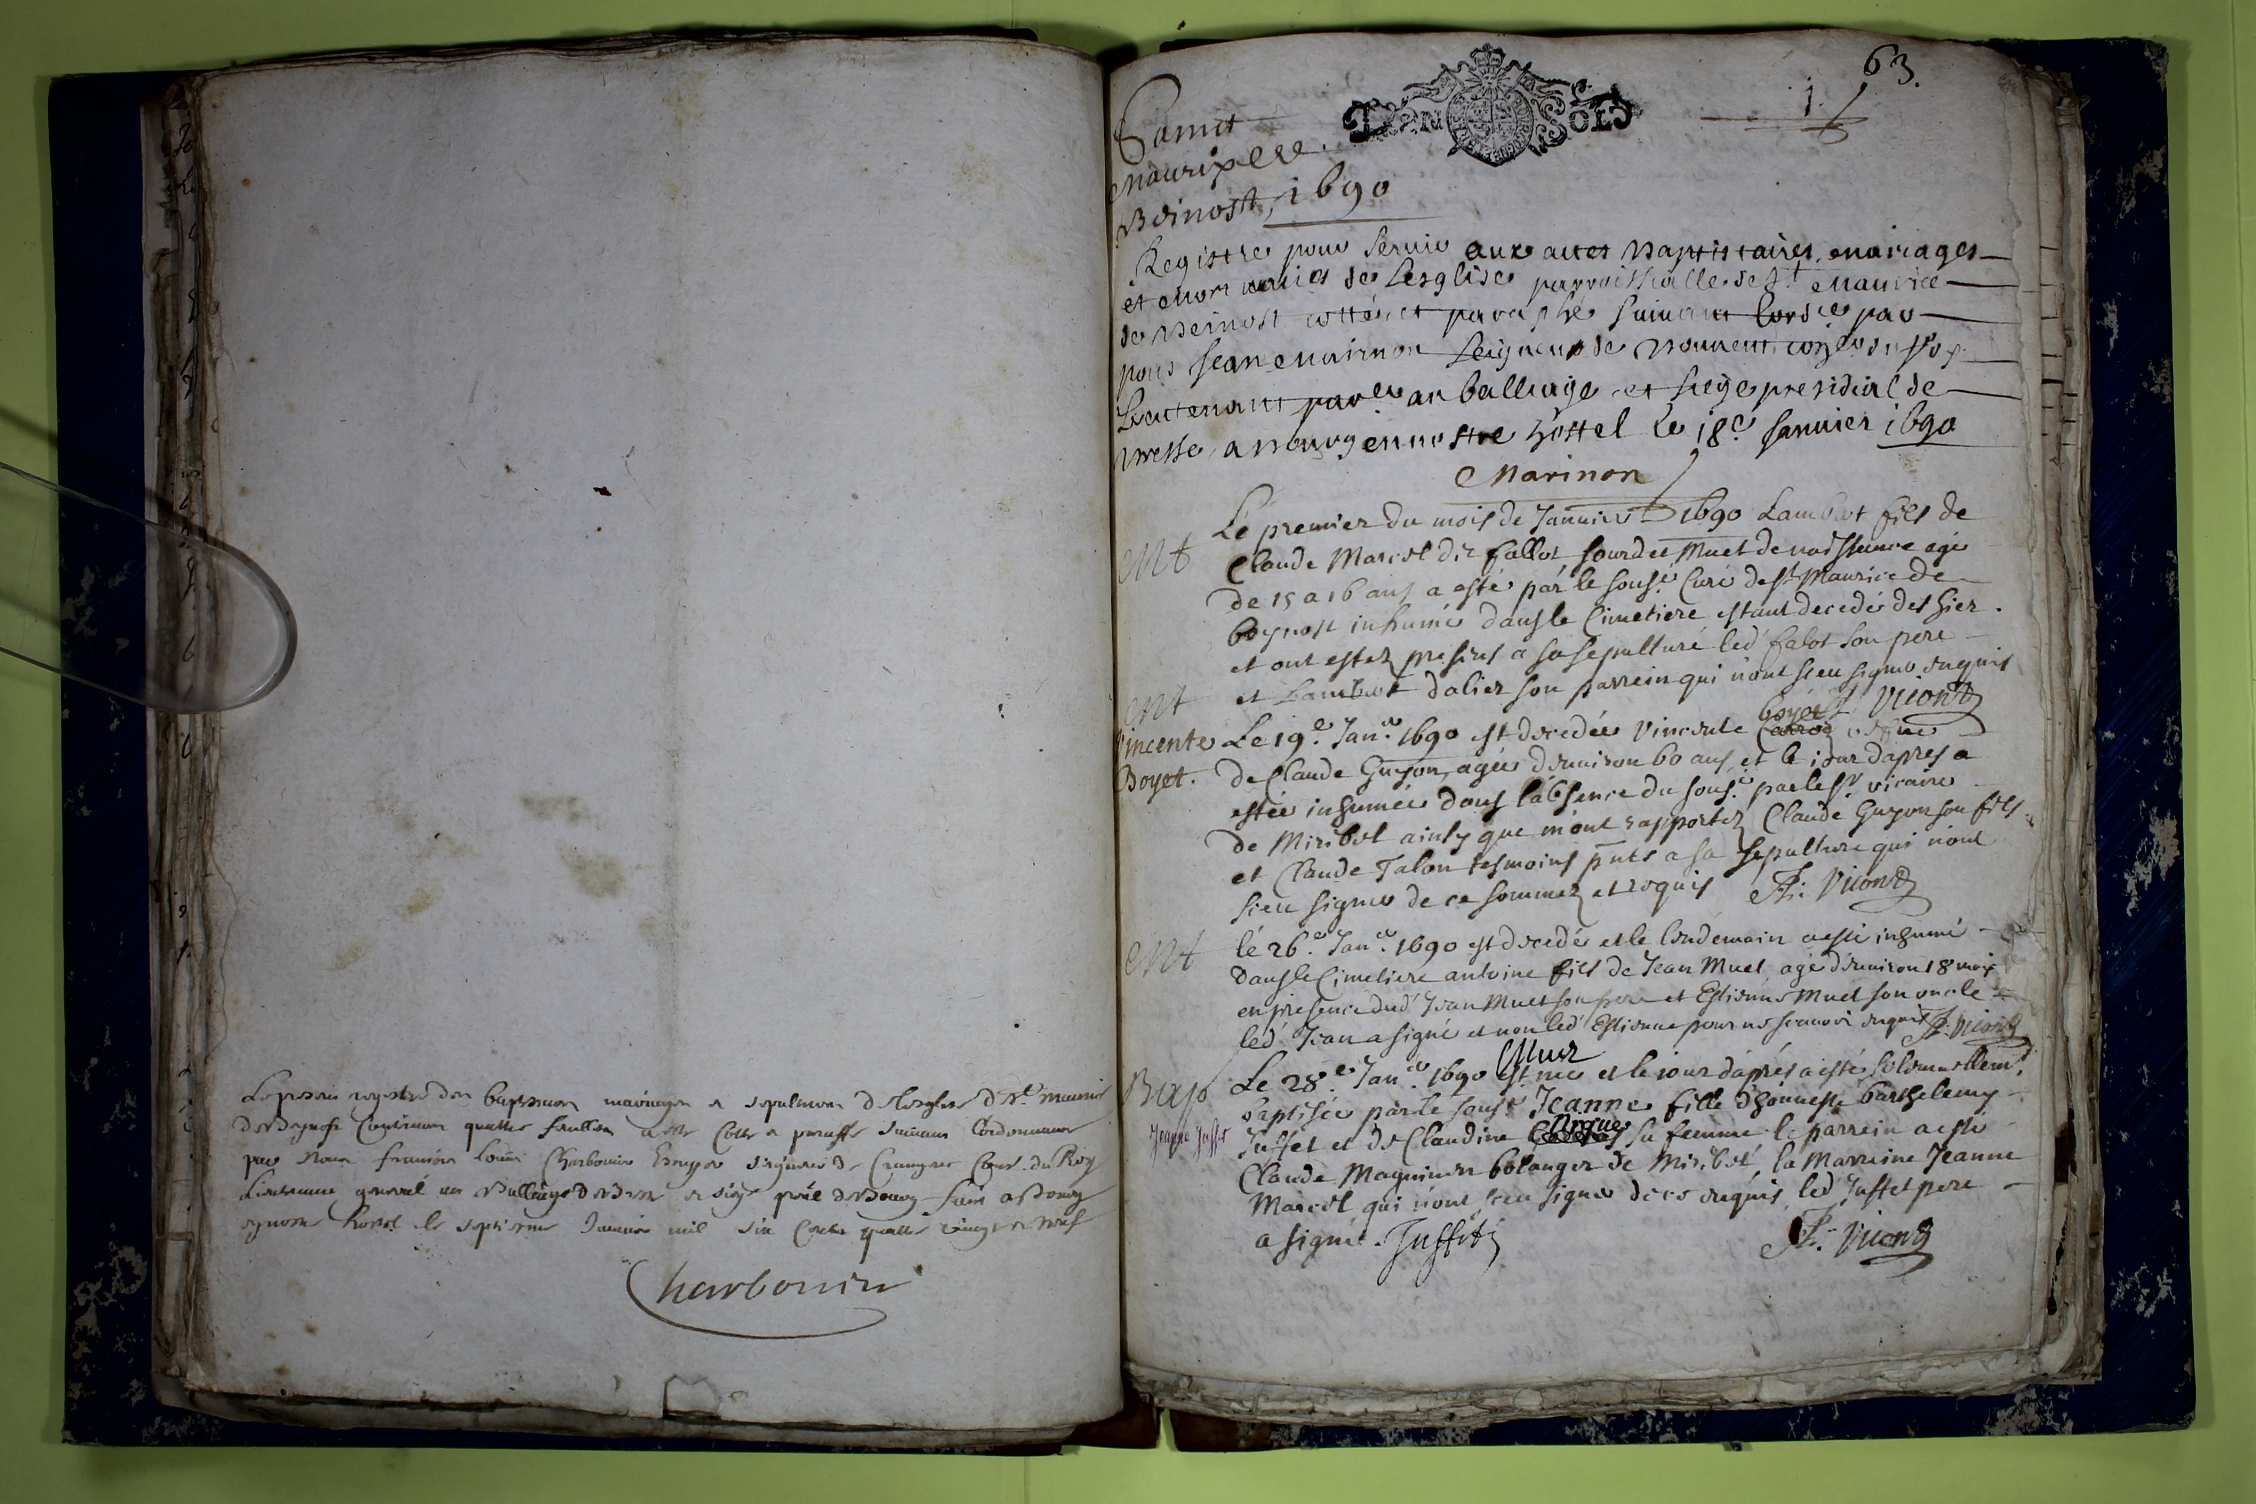 Le present registre des baptesmes mariages et sepultures de lesglise de St Maurice
de Beynost contenant quattre feuillets a esté cotté et paraffé suivant lordonnance
par Nous François Louis Charbonnier Escuyer seigneur de Crangeac Coner du Roy
Lieutenant general au Balliage de Bresse et siege pnal de Bourg fait a Bourg
en nostre hostel le septiesme Januier mil six cents quattre vingt et neuf
Charbonnier
63.
1
UN SOL
Sainct
Maurixe de
Beinost, 1690
Registre pour seruir aux actes baptistaires, mariages
et mortuaires de Lesglise parroissialle de St Maurice
de Beinost cotté et paraphé suiuant lordce par
nous Jean Marinon seigneur de coner du Roy
Lieutenant au balliage et siege presidial de
Bresse, a Bourg en nostre hostel Le 18e Januier 1690
Marinon
Le premier du mois de Januier 1690 Lambert fils de
Mt Claude Marcel dit fallot sourd et Muet de naissance agé
de 15 a 16 ans a esté par le sousé Curé de St Maurice de
beynost inhumé dans le Cimetiere estant decedé des hier.
et ont estez presens a sa sepulture led fabot son pere
et Lambert dalier son parrein qui n'ont sceu signer enquis
Mt F. Vicond
boyet
Vincente Le 19e Janer 1690 est decedée Vincente vefue
Boyet. de Claude Guyon, agée denuiron 60 ans, et le iour d'apres a
estée inhumée dans l'absence du sousé par le Sr vicaire
de Miribel ainsy que m'ont rapportez Claude Guyon son fils
et Claude Talon tesmoins pnts a sa sepulture qui n'ont
sceu signer de ce sommez et requis F. Vicond
Mt le 26e Janer 1690 est decedé et le lendemain a esté inhumé
dans le Cimetiere antoine fils de Jean Muet, agé d'enuiron 18 mois
en presence dud Jean Muet son pere et Estienne Muet son oncle
led Jean a signé et non led Estienne pour ne scauoir enquis F. Vicond
Muet
Bap Le 28e Janer 1690 est née et le iour d'aprés a esté solemnellemt
baptisée par le sousé Jeanne fille d'honneste barthelemy
Jeanne Juffet Juffet et de Claudine sa femme le parrein a esté
Claude Magninon bolanger de Miribel, la Marreine Jeanne
Marcel qui n'ont sceu signer de ce enquis, led Juffet pere
a signé. Juffet F. Vicond